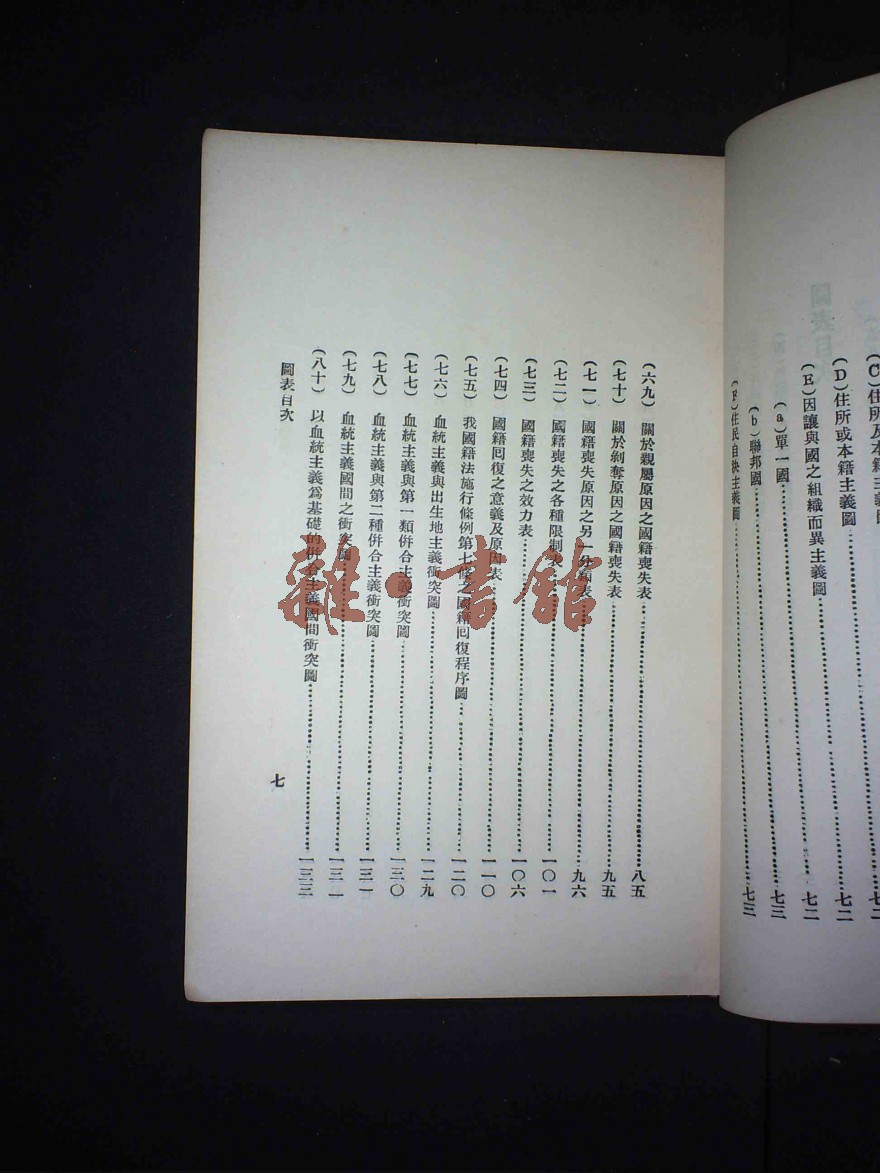 (C)住所及本籍主義圖………七二
(D)住所或本籍主義圖………七二
(E)因讓與國之組織而異主義圖………七二
(a)單一國………七三
(b)聯邦國………七三
(F)住民自決主義圖………七三
(六九) 關於親屬原因之國籍喪失表………八五
(七十) 關於剝奪原因之國籍喪失表………九五
(七一) 國籍喪失原因之另一分類表………九六
(七二) 國籍喪失之各種限制表………一〇一
(七三) 國籍喪失之效力表………一〇六
(七四) 國籍囘復之意義及原因表………一一〇
(七五) 我國籍法施行條例第七條之國籍囘復程序圖………一二〇
(七六) 血統主義與出生地主義衝突圖………一二九
(七七) 血統主義與第一類併合主義衝突圖………一三〇
(七八) 血統主義與第二種併合主義衝突圖………一三一
(七九) 血統主義國間之衝突圖………一三二
(八十) 以血統主義爲基礎的併合主義國間衝突圖………一三三
圖表目次
七
雜·書館